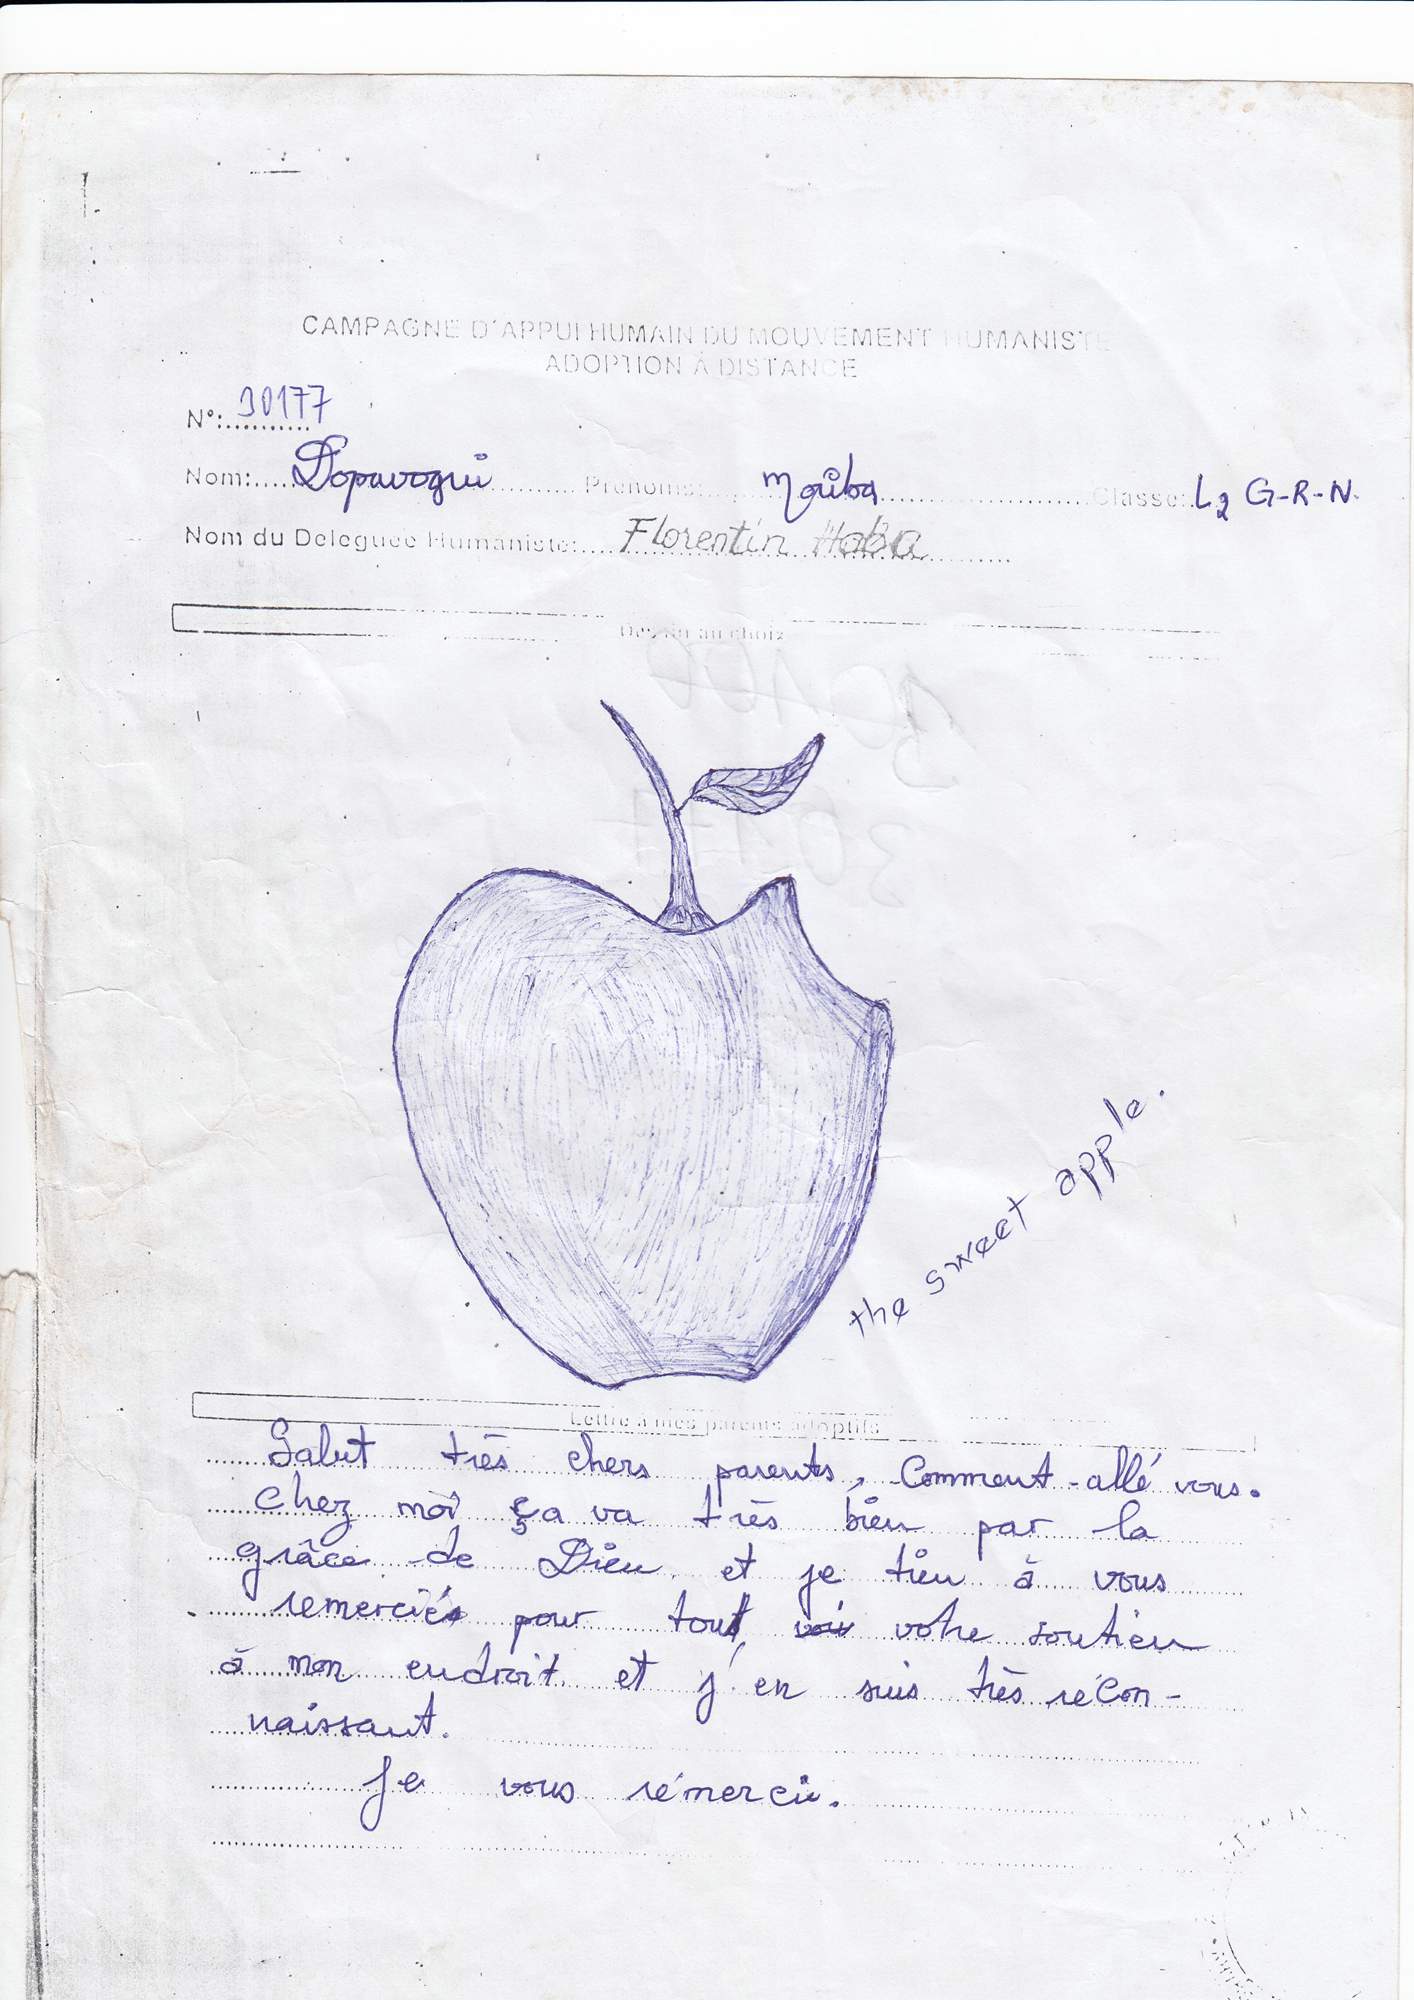 CAMPAGNE D'APPUI HUMAIN DU MOUVEMENT HUMANISTE
ADOPTION À DISTANCE
N°: 30177
Nom: Dopavogui Prénoms: Moriba Classe: L2 G-R-N.
Nom du Déléguée Humaniste: Florentin Haba
Dessin au choix
the sweet apple.
Lettre à mes parents adoptifs
Salut très chers parents, Comment-allé vous.
Chez moi ça va très bien par la
grâce de Dieu et je tien à vous
remerciés pour tout votre soutien
à mon endroit et j'en suis très récon-
naissant.
Je vous rémercie.